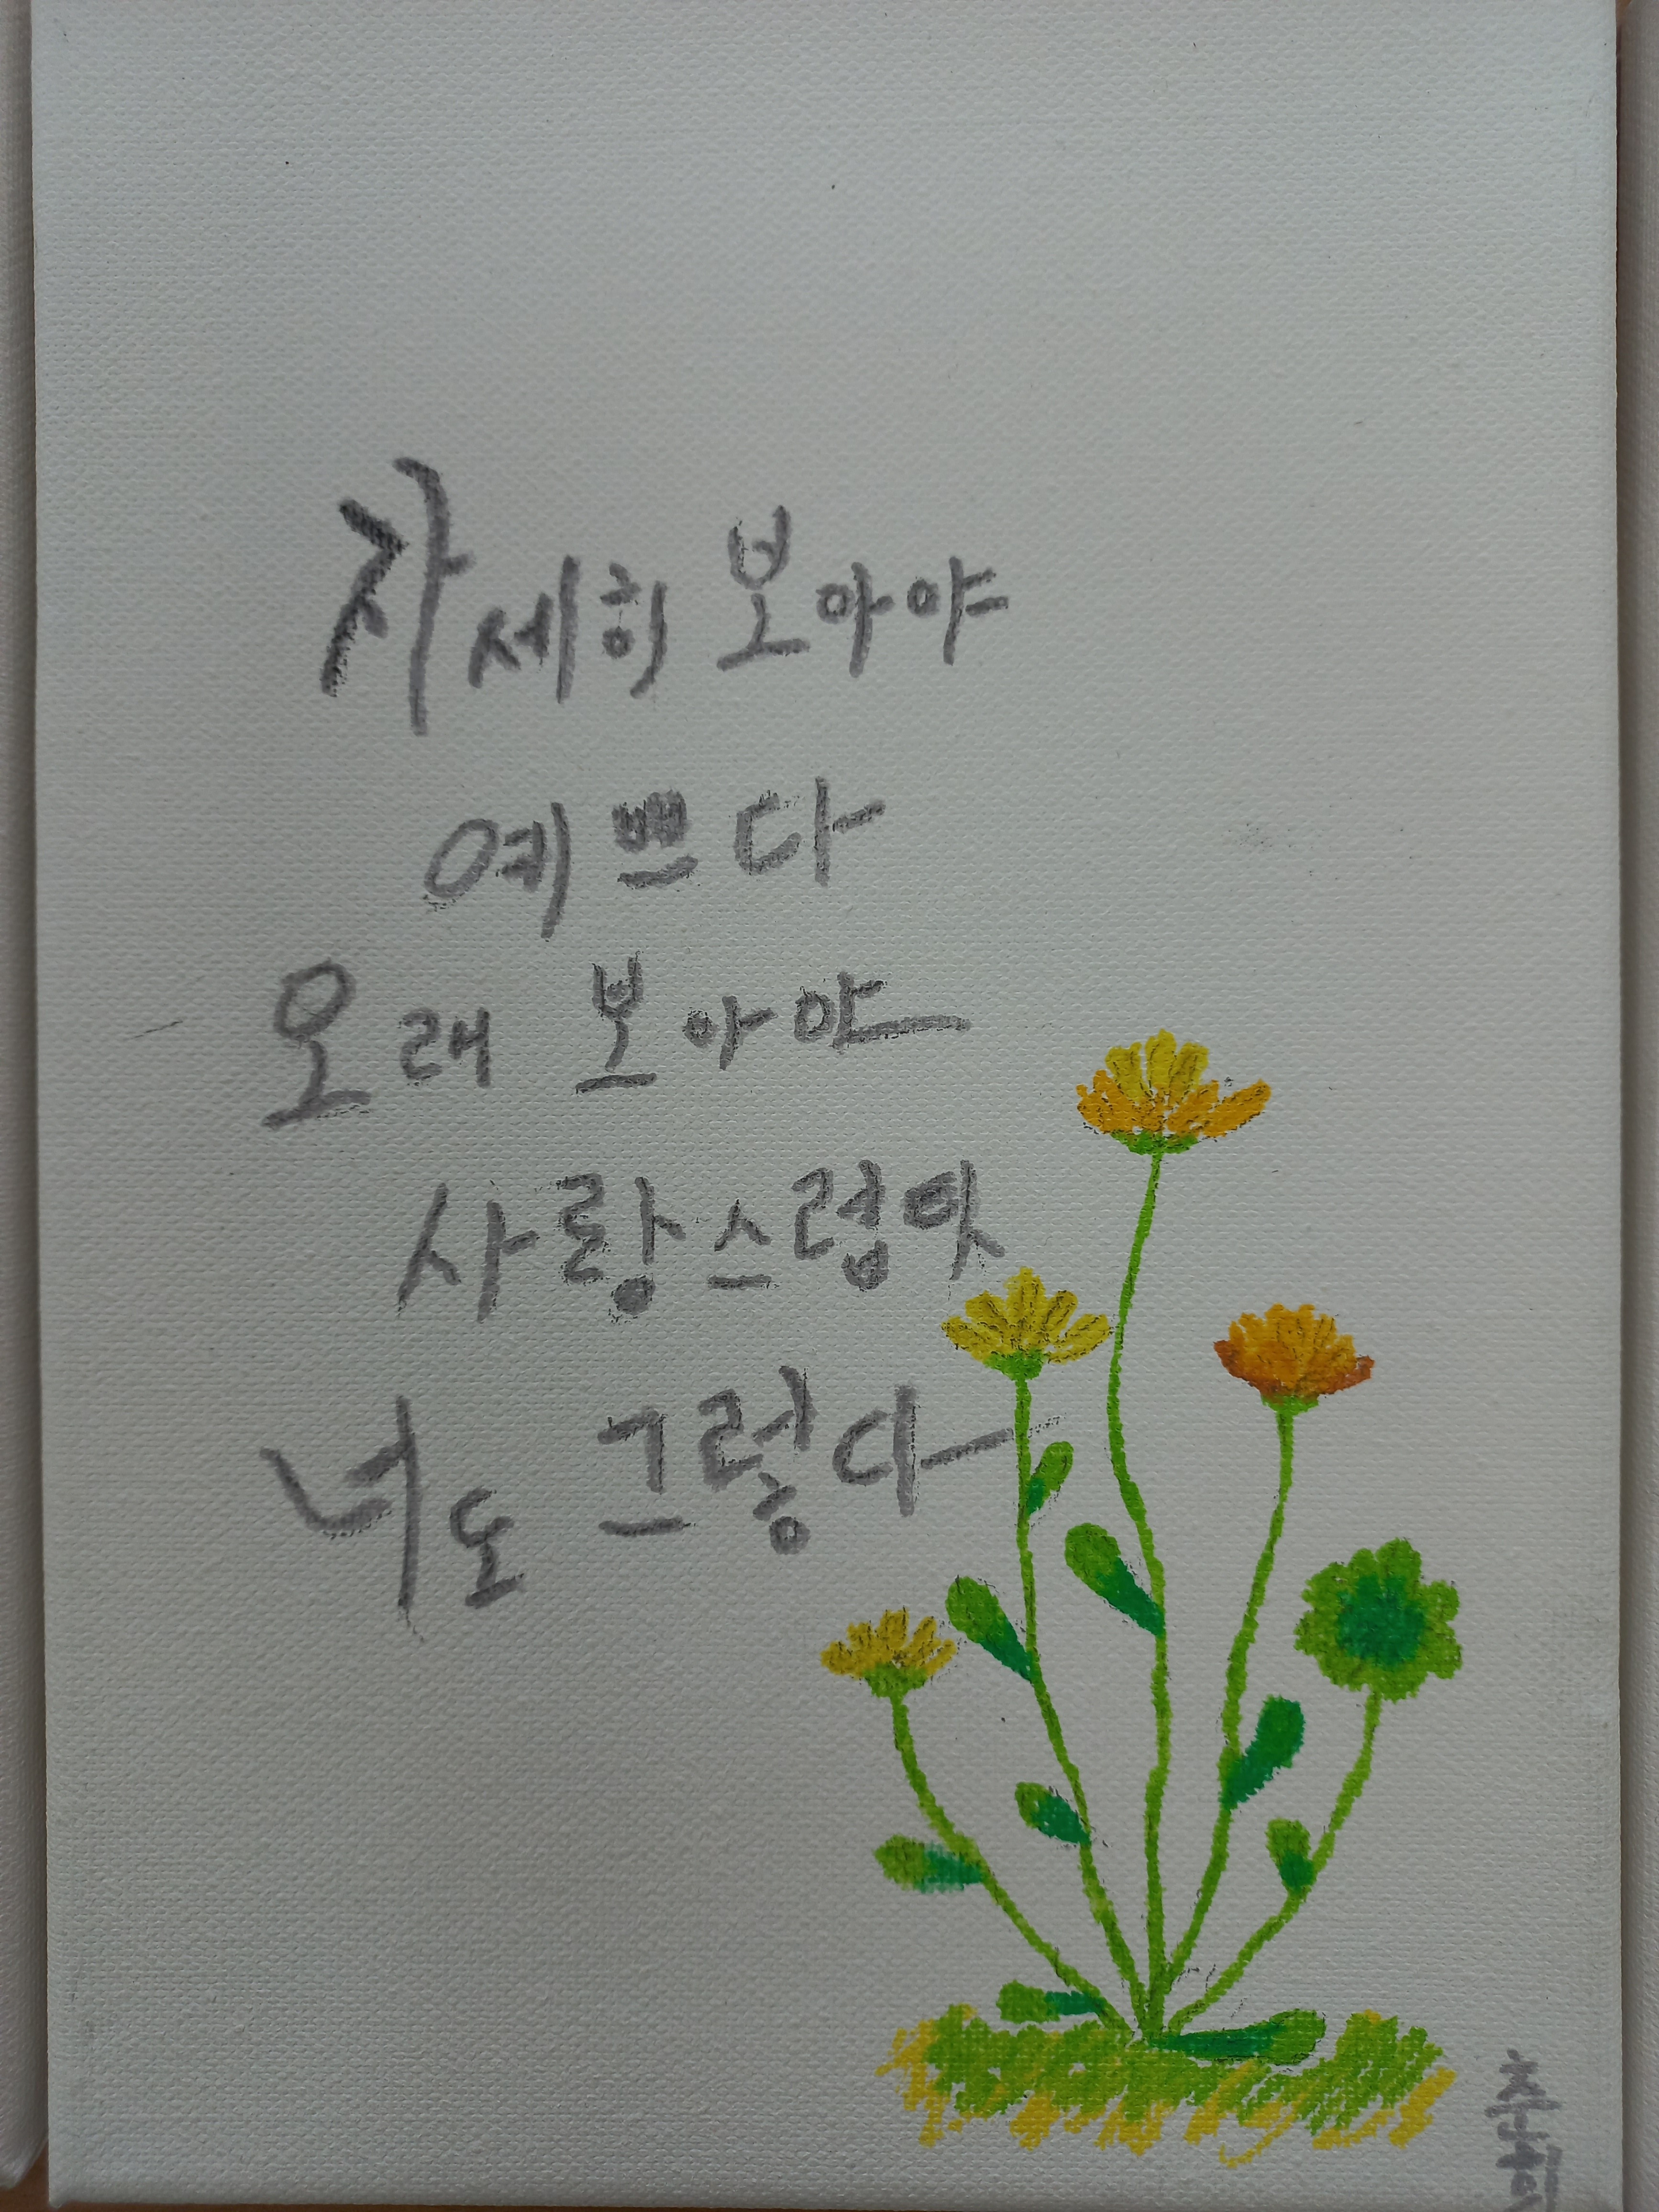 자세히 보아야
예쁘다
오래 보아야
사랑스럽다
너도 그렇다
춘희